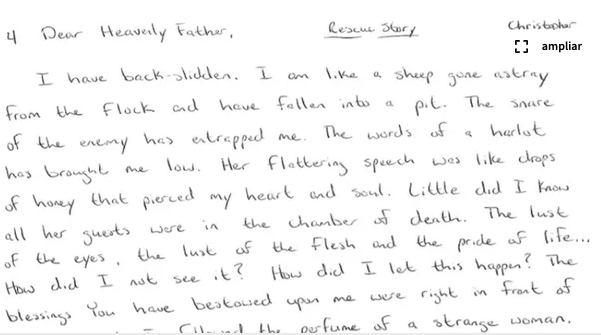 4 Dear Heavenly Father, Rescue Story Christopher
ampliar
I have back-slidden. I am like a sheep gone astray
from the flock and have fallen into a pit. The snare
of the enemy has entrapped me. The words of a harlot
has brought me low. Her flattering speech was like drops
of honey that pierced my heart and soul. Little did I know
all her guests were in the chamber of death. The lust
of the eyes, the lust of the flesh and the pride of life...
How did I not see it? How did I let this happen? The
blessings You have bestowed upon me were right in front of
I the perfume of a strange woman.